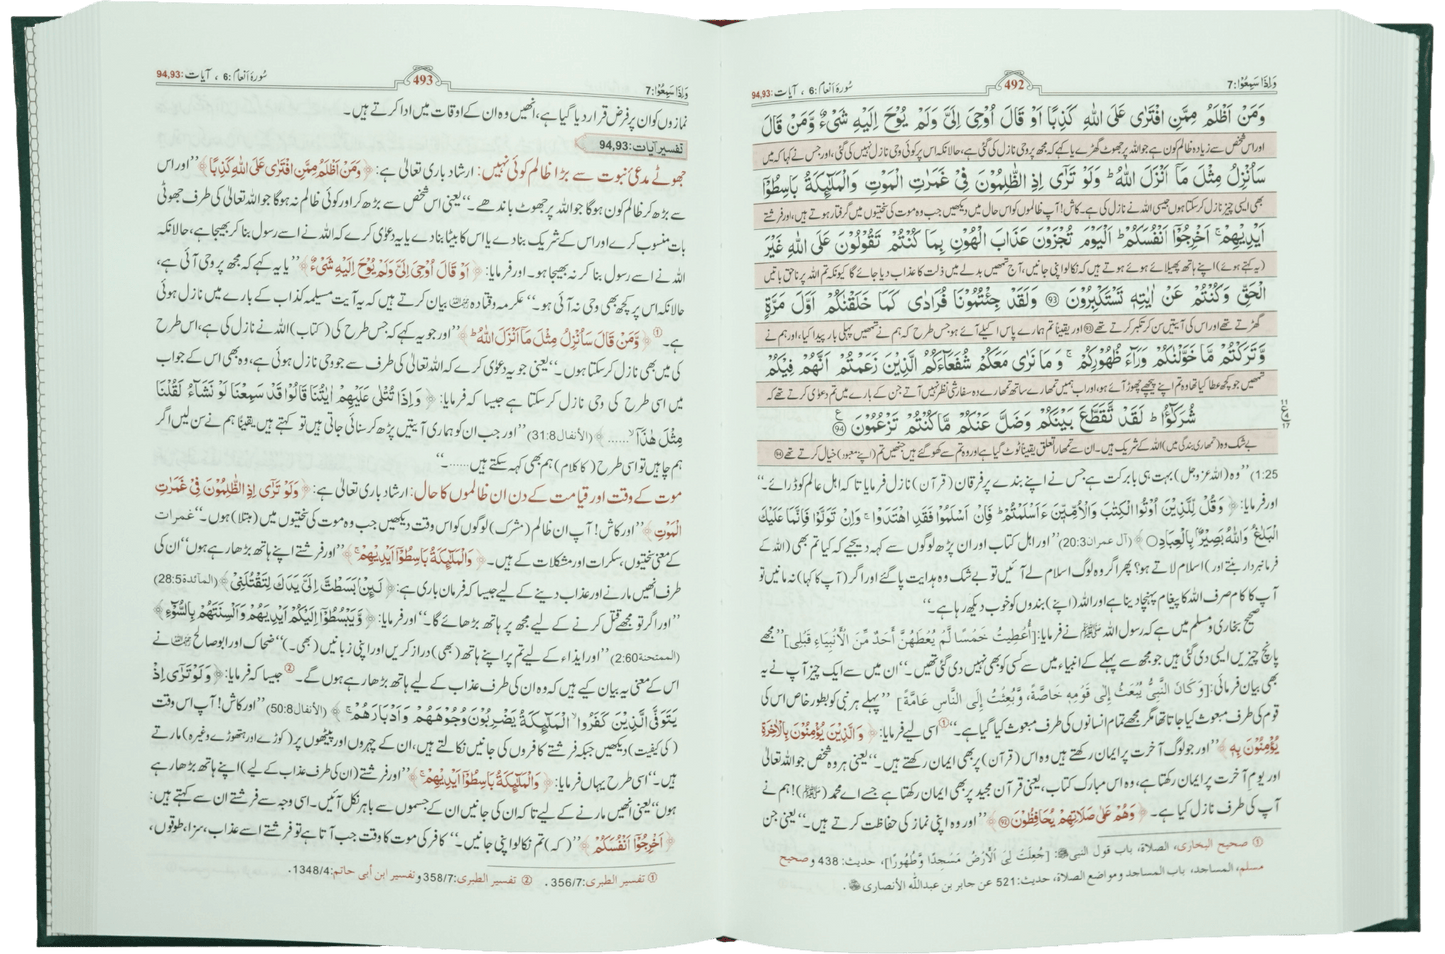 وَإِذَا سَمِعُوْا:7
492
سُورۂ اَنعام :6 ، آیات:94,93
وَمَنْ اَظْلَمُ مِمَّنِ افْتَرٰى عَلَى اللّٰهِ كَذِبًا اَوْ قَالَ اُوْحِيَ اِلَيَّ وَلَمْ يُوْحَ اِلَيْهِ شَيْءٌ وَّمَنْ قَالَ
اور اس شخص سے زیادہ ظالم کون ہے جو اللہ پر جھوٹ گھڑے یا کہے کہ مجھ پر وحی نازل کی گئی ہے، حالانکہ اس پر کوئی وحی نازل نہیں کی گئی، اور جس نے کہا کہ میں
سَاُنْزِلُ مِثْلَ مَآ اَنْزَلَ اللّٰهُ ۭ وَلَوْ تَرٰٓى اِذِ الظّٰلِمُوْنَ فِيْ غَمَرٰتِ الْمَوْتِ وَالْمَلٰٓىِٕكَةُ بَاسِطُوْٓا
بھی ایسی چیز نازل کرسکتا ہوں جیسی اللہ نے نازل کی ہے۔ کاش! آپ ظالموں کو اس حال میں دیکھیں جب وہ موت کی سختیوں میں گرفتار ہوتے ہیں، اور فرشتے
اَيْدِيْهِمْ ۚ اَخْرِجُوْٓا اَنْفُسَكُمْ ۭ اَلْيَوْمَ تُجْزَوْنَ عَذَابَ الْهُوْنِ بِمَا كُنْتُمْ تَقُوْلُوْنَ عَلَى اللّٰهِ غَيْرَ
(یہ کہتے ہوئے) اپنے ہاتھ پھیلائے ہوئے ہوتے ہیں کہ نکالو اپنی جانیں، آج تمھیں بدلے میں ذلت کا عذاب دیا جائے گا کیونکہ تم اللہ پر ناحق باتیں
الْحَقِّ وَكُنْتُمْ عَنْ اٰيٰتِهٖ تَسْتَكْبِرُوْنَ 93 وَلَقَدْ جِئْتُمُوْنَا فُرَادٰى كَمَا خَلَقْنٰكُمْ اَوَّلَ مَرَّةٍ
گھڑتے تھے اور اس کی آیتیں سن کر تکبر کرتے تھے 93 اور یقینًا تم ہمارے پاس اکیلے آئے ہو جس طرح کہ ہم نے تمھیں پہلی بار پیدا کیا، اور ہم نے
وَّتَرَكْتُمْ مَّا خَوَّلْنٰكُمْ وَرَآءَ ظُهُوْرِكُمْ ۚ وَمَا نَرٰى مَعَكُمْ شُفَعَآءَكُمُ الَّذِيْنَ زَعَمْتُمْ اَنَّهُمْ فِيْكُمْ
تمھیں جو کچھ عطا کیا تھا وہ تم اپنے پیچھے چھوڑ آئے ہو، اور ہمیں تمھارے ساتھ تمھارے وہ سفارشی نظر نہیں آتے جن کے بارے میں تم دعویٰ کرتے تھے کہ
شُرَكٰٓؤُا ۭ لَقَدْ تَّقَطَّعَ بَيْنَكُمْ وَضَلَّ عَنْكُمْ مَّا كُنْتُمْ تَزْعُمُوْنَ 94
بے شک وہ (تمھاری بندگی میں) اللہ کے شریک ہیں۔ ان سے تمھارا تعلق یقینًا ٹوٹ گیا ہے اور وہ تم سے کھو گئے ہیں جنھیں تم (اپنے معبود) خیال کرتے تھے 94
1:25) ’’وہ (اللہ عزوجل) بہت ہی بابرکت ہے جس نے اپنے بندے پر فرقان (قرآن) نازل فرمایا تاکہ اہل عالم کو ڈرائے۔‘‘
اور فرمایا: ﴿ وَقُلْ لِّلَّذِيْنَ اُوْتُوا الْكِتٰبَ وَالْاُمِّيّٖنَ ءَاَسْلَمْتُمْ ۭ فَاِنْ اَسْلَمُوْا فَقَدِ اهْتَدَوْا ۚ وَاِنْ تَوَلَّوْا فَاِنَّمَا عَلَيْكَ
الْبَلٰغُ ۭ وَاللّٰهُ بَصِيْرٌۢ بِالْعِبَادِ○ ﴾ (آل عمران 20:3) ’’اور اہل کتاب اور ان پڑھ لوگوں سے کہہ دیجیے کہ کیا تم بھی (اللہ کے
فرمانبردار بنتے اور) اسلام لاتے ہو؟ پھر اگر وہ لوگ اسلام لے آئیں تو بے شک وہ ہدایت پا گئے اور اگر (آپ کا کہا) نہ مانیں تو
آپ کا کام صرف اللہ کا پیغام پہنچا دینا ہے اور اللہ (اپنے) بندوں کو خوب دیکھ رہا ہے۔‘‘
صحیح بخاری و مسلم میں ہے کہ رسول اللہ ﷺ نے فرمایا: [أُعْطِيتُ خَمْسًا لَّمْ يُعْطَهُنَّ أَحَدٌ مِّنَ الْأَنْبِيَاءِ قَبْلِي] ’’مجھے
پانچ چیزیں ایسی دی گئی ہیں جو مجھ سے پہلے کے انبیاء میں سے کسی کو بھی نہیں دی گئی تھیں۔‘‘ ان میں سے ایک چیز آپ نے یہ
بھی بیان فرمائی: [وَكَانَ النَّبِيُّ يُبْعَثُ إِلَى قَوْمِهِ خَاصَّةً، وَّبُعِثْتُ إِلَى النَّاسِ عَامَّةً] ’’پہلے ہر نبی کو بطور خاص اس کی
قوم کی طرف مبعوث کیا جاتا تھا مگر مجھے تمام انسانوں کی طرف مبعوث کیا گیا ہے۔‘‘ ① اسی لیے فرمایا: ﴿ وَالَّذِيْنَ يُؤْمِنُوْنَ بِالْاٰخِرَةِ
يُؤْمِنُوْنَ بِهٖ ﴾ ’’اور جو لوگ آخرت پر ایمان رکھتے ہیں وہ اس (قرآن) پر بھی ایمان رکھتے ہیں۔‘‘ یعنی ہر وہ شخص جو اللہ تعالیٰ
اور یومِ آخرت پر ایمان رکھتا ہے، وہ اس مبارک کتاب، یعنی قرآن مجید پر بھی ایمان رکھتا ہے جسے اے محمد (ﷺ)! ہم نے
آپ کی طرف نازل کیا ہے۔ ﴿ وَهُمْ عَلٰى صَلَاتِهِمْ يُحَافِظُوْنَ 92 ﴾ ’’اور وہ اپنی نماز کی حفاظت کرتے ہیں۔‘‘ یعنی جن
① صحیح البخاری، الصلاۃ، باب قول النبی ﷺ: [جُعِلَتْ لِيَ الْأَرْضُ مَسْجِدًا وَّطَهُورًا]، حدیث: 438 و صحیح
مسلم، المساجد، باب المساجد ومواضع الصلاۃ، حدیث: 521 عن جابر بن عبداللہ الأنصاری .
وَإِذَا سَمِعُوْا:7
493
سُورۂ اَنعام :6 ، آیات:94,93
نمازوں کو ان پر فرض قرار دیا گیا ہے، انھیں وہ ان کے اوقات میں ادا کرتے ہیں۔
تفسیر آیات:94,93
جھوٹے مدعیٔ نبوت سے بڑا ظالم کوئی نہیں: ارشاد باری تعالیٰ ہے: ﴿ وَمَنْ اَظْلَمُ مِمَّنِ افْتَرٰى عَلَى اللّٰهِ كَذِبًا ﴾ ’’اور اس
سے بڑھ کر ظالم کون ہوگا جو اللہ پر جھوٹ باندھے۔‘‘ یعنی اس شخص سے بڑھ کر اور کوئی ظالم نہ ہوگا جو اللہ تعالیٰ کی طرف جھوٹی
بات منسوب کرے اور اس کے شریک بنا دے یا اس کا بیٹا بنا دے یا یہ دعویٰ کرے کہ اللہ نے اسے رسول بنا کر بھیجا ہے، حالانکہ
اللہ نے اسے رسول بنا کر نہ بھیجا ہو۔ اور فرمایا: ﴿ اَوْ قَالَ اُوْحِيَ اِلَيَّ وَلَمْ يُوْحَ اِلَيْهِ شَيْءٌ ﴾ ’’یا یہ کہے کہ مجھ پر وحی آئی ہے،
حالانکہ اس پر کچھ بھی وحی نہ آئی ہو۔‘‘ عکرمہ و قتادہ بیان کرتے ہیں کہ یہ آیت مسیلمہ کذاب کے بارے میں نازل ہوئی
ہے۔① ﴿ وَمَنْ قَالَ سَاُنْزِلُ مِثْلَ مَآ اَنْزَلَ اللّٰهُ ۭ ﴾ ’’اور جو یہ کہے کہ جس طرح کی (کتاب) اللہ نے نازل کی ہے، اس طرح
کی میں بھی نازل کرسکتا ہوں۔‘‘ یعنی جو یہ دعویٰ کرے کہ اللہ تعالیٰ کی طرف سے جو وحی نازل ہوئی ہے، وہ بھی اس کے جواب
میں اسی طرح کی وحی نازل کرسکتا ہے جیسا کہ فرمایا: ﴿ وَاِذَا تُتْلٰى عَلَيْهِمْ اٰيٰتُنَا قَالُوْا قَدْ سَمِعْنَا لَوْ نَشَآءُ لَقُلْنَا
مِثْلَ هٰذَآ ۙ ...... ﴾ (الأنفال 31:8) ’’اور جب ان کو ہماری آیتیں پڑھ کر سنائی جاتی ہیں تو کہتے ہیں یقینًا ہم نے سن لیں اگر
ہم چاہیں تو اسی طرح (کا کلام) ہم بھی کہہ سکتے ہیں......۔‘‘
موت کے وقت اور قیامت کے دن ان ظالموں کا حال: ارشاد باری تعالیٰ ہے: ﴿ وَلَوْ تَرٰٓى اِذِ الظّٰلِمُوْنَ فِيْ غَمَرٰتِ
الْمَوْتِ ﴾ ’’اور کاش! آپ ان ظالم (مشرک) لوگوں کو اس وقت دیکھیں جب وہ موت کی سختیوں میں (مبتلا) ہوں۔‘‘ غمرات
کے معنی سختیوں، سکرات اور مشکلات کے ہیں۔ ﴿ وَالْمَلٰٓىِٕكَةُ بَاسِطُوْٓا اَيْدِيْهِمْ ۚ ﴾ ’’اور فرشتے اپنے ہاتھ بڑھا رہے ہوں‘‘ ان کی
طرف انھیں مارنے اور عذاب دینے کے لیے جیسا کہ فرمان باری ہے: ﴿ لَىِٕنْۢ بَسَطْتَّ اِلَيَّ يَدَكَ لِتَقْتُلَنِيْ ﴾ (المآئدۃ 28:5)
’’اور اگر تو مجھے قتل کرنے کے لیے مجھ پر ہاتھ بڑھائے گا۔‘‘ اور فرمایا: ﴿ وَّيَبْسُطُوْٓا اِلَيْكُمْ اَيْدِيَهُمْ وَاَلْسِنَتَهُمْ بِالسُّوْٓءِ ﴾
(الممتحنۃ 2:60) ’’اور ایذاء کے لیے تم پر اپنے ہاتھ (بھی) دراز کریں اور اپنی زبانیں (بھی)۔‘‘ ضحاک اور ابوصالح نے
اس کے معنی یہ بیان کیے ہیں کہ وہ ان کی طرف عذاب کے لیے ہاتھ بڑھا رہے ہوں گے۔② جیسا کہ فرمایا: ﴿ وَلَوْ تَرٰٓى اِذْ
يَتَوَفَّى الَّذِيْنَ كَفَرُوا ۙ الْمَلٰٓىِٕكَةُ يَضْرِبُوْنَ وُجُوْهَهُمْ وَاَدْبَارَهُمْ ۚ ﴾ (الأنفال 50:8) ’’اور کاش! آپ اس وقت
(کی کیفیت) دیکھیں جبکہ فرشتے کافروں کی جانیں نکالتے ہیں، ان کے چہروں اور پیٹھوں پر (کوڑے اور ہتھوڑے وغیرہ) مارتے
ہیں۔‘‘ اسی طرح یہاں فرمایا: ﴿ وَالْمَلٰٓىِٕكَةُ بَاسِطُوْٓا اَيْدِيْهِمْ ۚ ﴾ ’’اور فرشتے (ان کی طرف عذاب کے لیے) اپنے ہاتھ بڑھا رہے
ہوں‘‘ یعنی انھیں مارنے کے لیے تاکہ ان کی جانیں ان کے جسموں سے باہر نکل آئیں۔ اسی وجہ سے فرشتے ان سے کہتے ہیں:
﴿ اَخْرِجُوْٓا اَنْفُسَكُمْ ۭ ﴾ ’’(کہ) تم نکالو اپنی جانیں۔‘‘ کافر کی موت کا وقت جب آتا ہے تو فرشتے اسے عذاب، سزا، طوقوں،
① تفسیر الطبری: 356/7. ② تفسیر الطبری: 358/7 و تفسیر ابن أبی حاتم: 1348/4.